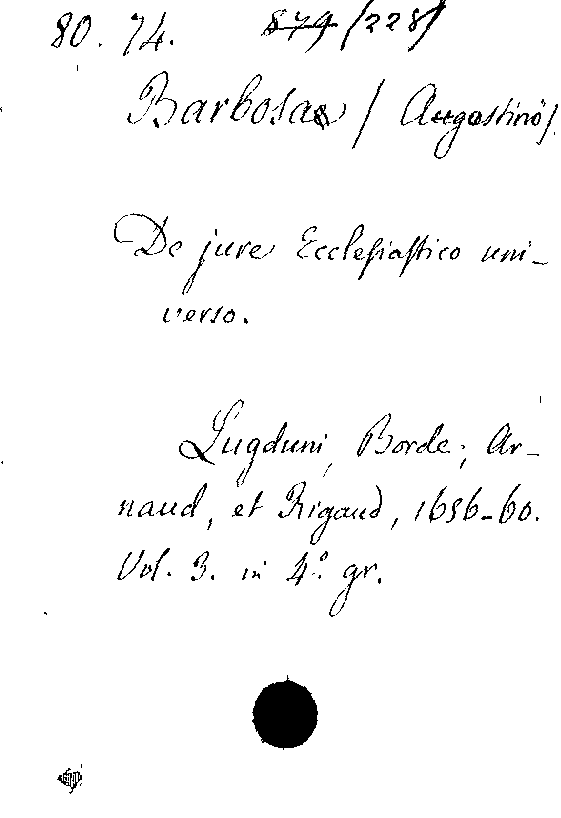 80. 74. 879 /228/
Barbosa / Augostino /.
De jure Ecclesiastico uni-
verso.
Lugduni, Borde, Ar-
naud, et Rigaud, 1656-60.
Vol. 3. in 4.° gr.